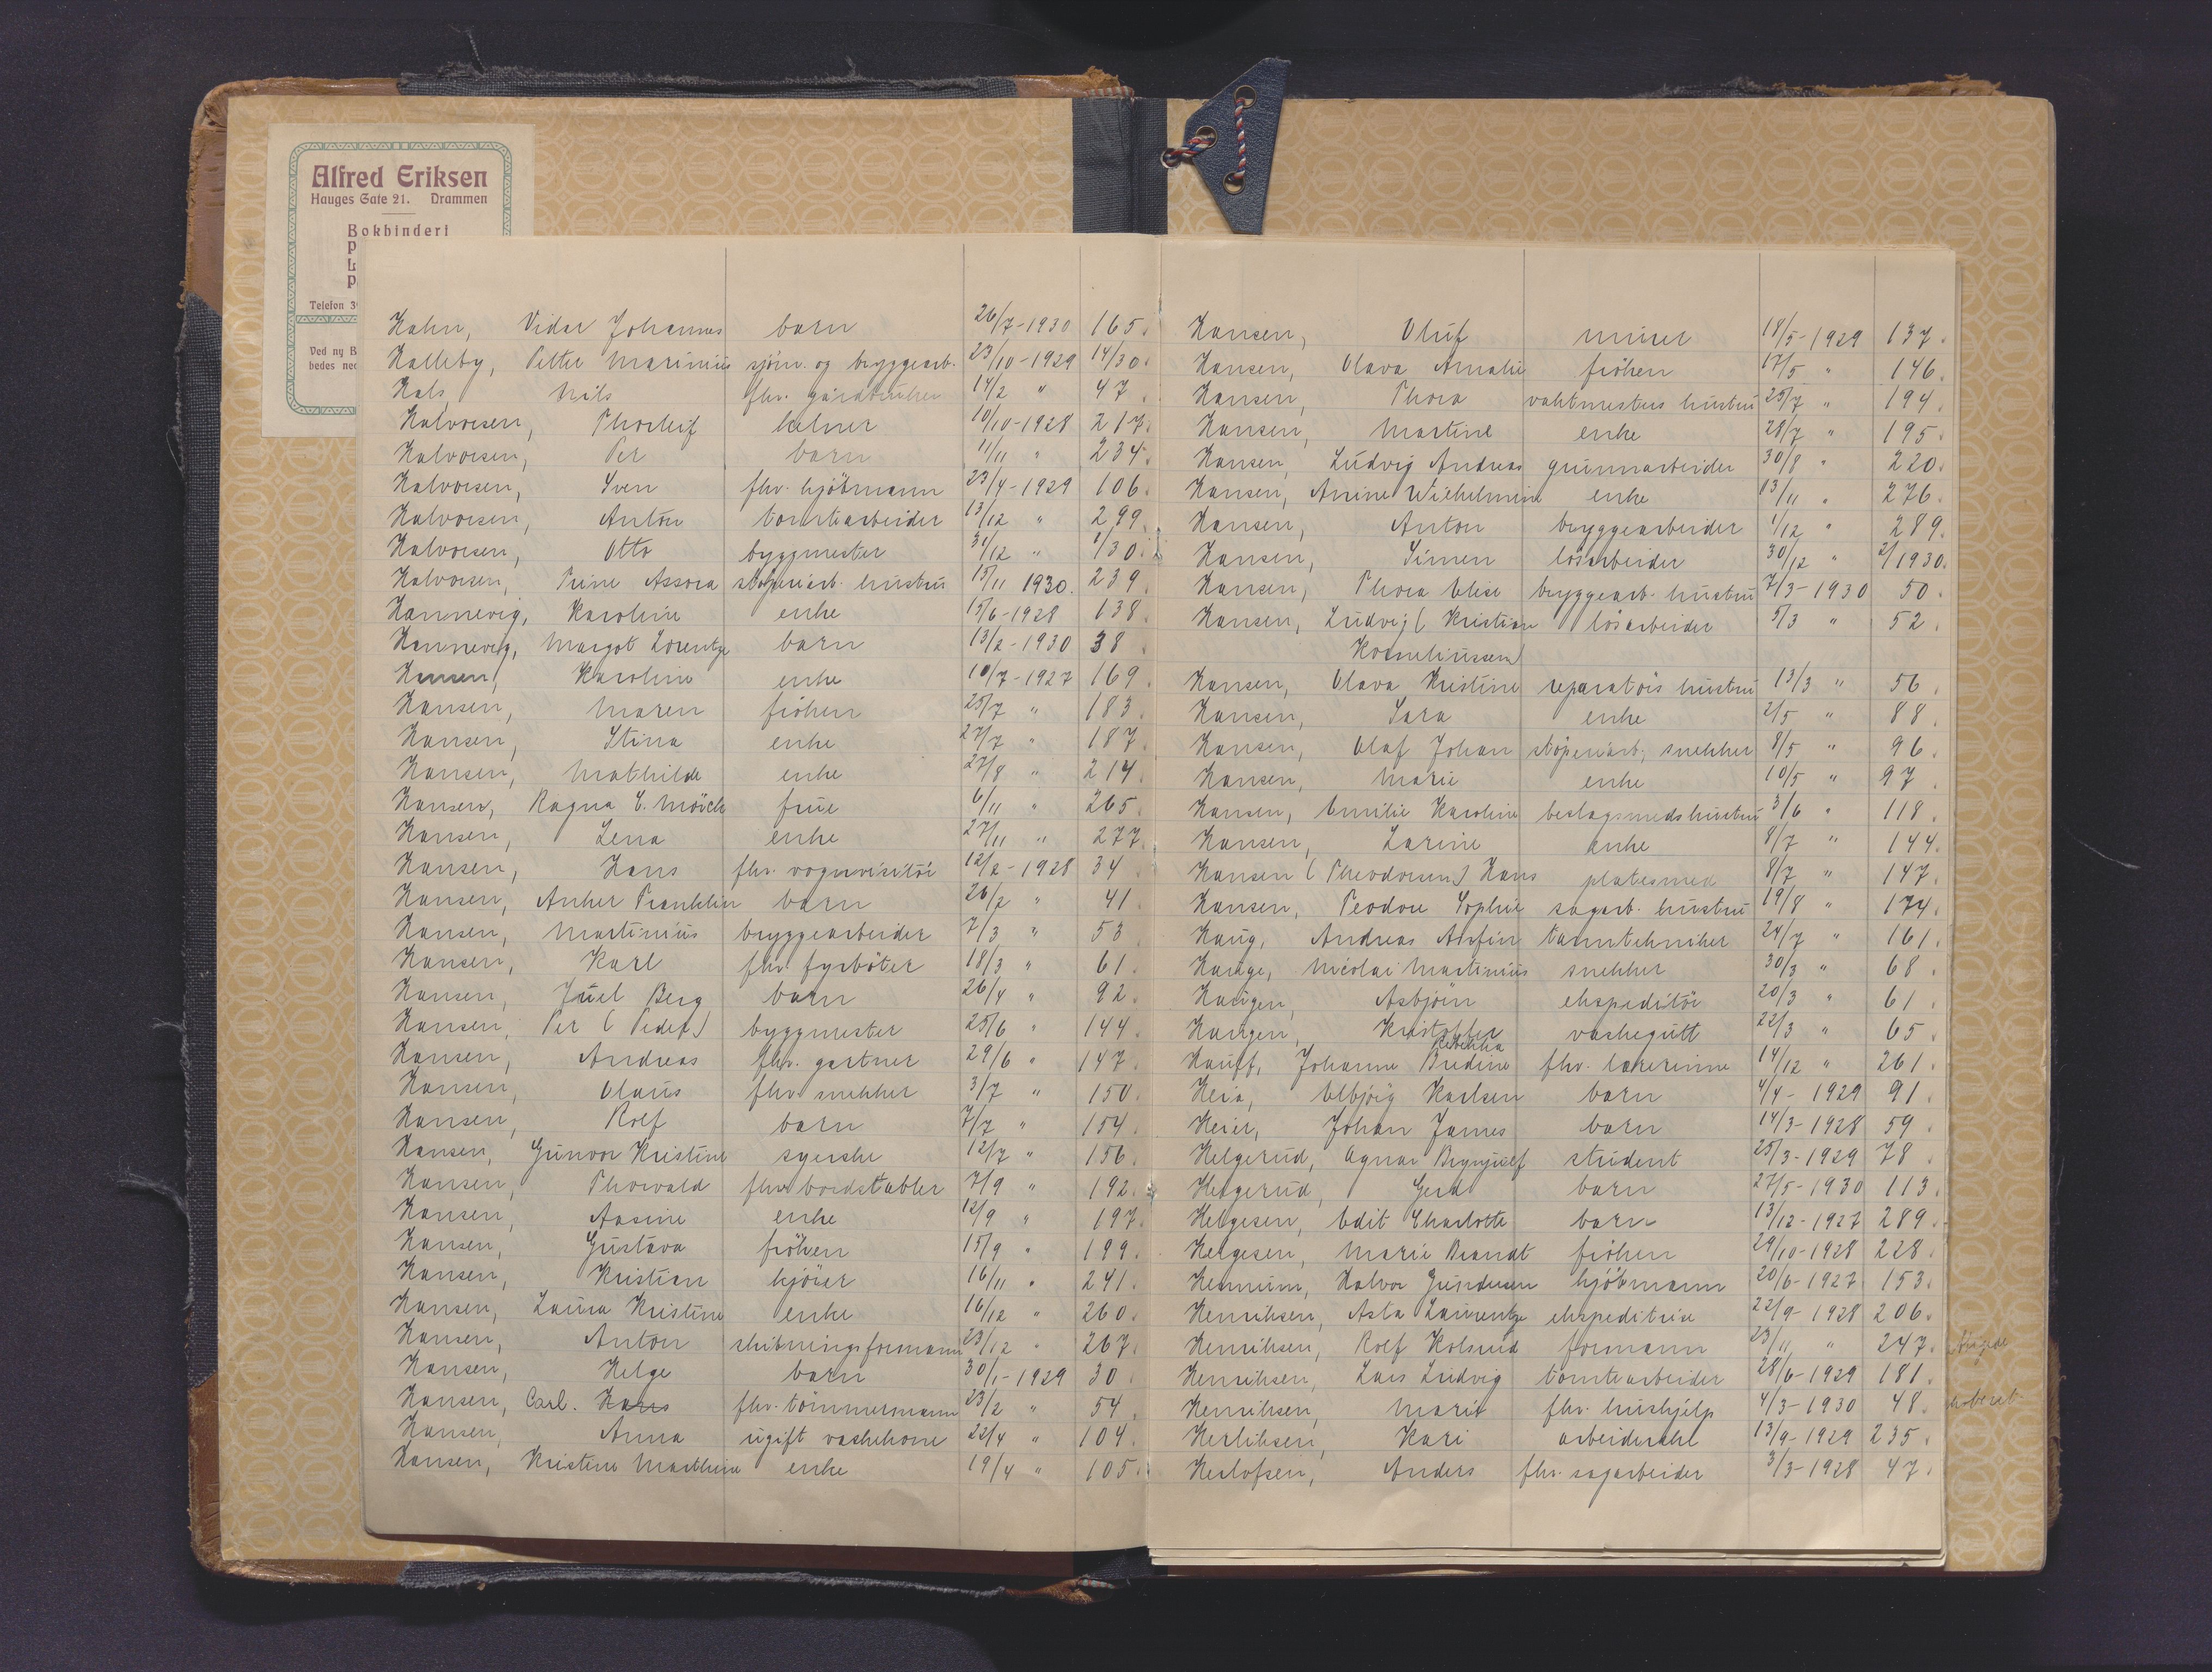 Alfred Eriksen
Hauges Gate 21. Drammen
Bokbinderi
P
L
P
Telefon 3
Ved ny B
bedes ned
Hahn, Vidar Johannes barn 26/7-1930 165.
Halleby, Petter Marinius sjöm. og bryggearb. 23/10-1929 14/30.
Hals, Nils fhv. gårdbruker 14/2 " 47.
Halvorsen, Thorleif kelner 10/10-1928 217.
Halvorsen, Per barn 11/11 " 234.
Halvorsen, Sven fhv. kjöbmann 23/4-1929 106.
Halvorsen, Anton tomtearbeider 13/12 " 299.
Halvorsen, Otto byggmester 31/12 " 1/30.
Halvorsen, Trine Assora stöperiarb. hustru 15/11 1930. 239.
Hannevig, Karoline enke 15/6-1928 138.
Hannevig, Margot Lorentze barn 13/2-1930 38.
Hansen, Karoline enke 10/7-1927 169.
Hansen, Maren fröken 25/7 " 183.
Hansen, Stina enke 27/7 " 187.
Hansen, Mathilde enke 27/8 " 214.
Hansen, Ragna E. Mörch frue 6/11 " 265.
Hansen, Lena enke 27/11 " 277.
Hansen, Hans fhv. vognvisitör 12/2-1928 34
Hansen, Anker Franklin barn 26/2 " 41.
Hansen, Martinius bryggearbeider 7/3 " 53
Hansen, Karl fhv. fyrböter 18/3 " 61.
Hansen, Juel Berg barn 26/4 " 92.
Hansen, Per (Peder) byggmester 25/6 " 144.
Hansen, Andreas fhv. gartner 29/6 " 147.
Hansen, Olaus fhv. snekker 3/7 " 150.
Hansen, Rolf barn 7/7 " 154.
Hansen, Gunvor Kristine syerske 12/7 " 156.
Hansen, Thorvald fhv. bordstabler 7/9 " 192.
Hansen, Aasine enke 12/9 " 197.
Hansen, Gustava fröken 15/9 " 199.
Hansen, Kristian kjörer 16/11 " 241.
Hansen, Laura Kristine enke 16/12 " 260.
Hansen, Anton skibningsformann 23/12 " 267.
Hansen, Helge barn 30/1-1929 30
Hansen, Carl. Hans fhv. tömmermann 23/2 " 54
Hansen, Anna ugift vaskekone 22/4 " 104.
Hansen, Kristine Marthine enke 19/4 " 105.
Hansen, Oluf murer 18/5-1929 137.
Hansen, Olava Amalie fröken 17/5 " 146.
Hansen, Thora vaktmesters hustru 25/7 " 194.
Hansen, Martine enke 28/7 " 195.
Hansen, Ludvig Andreas grunnarbeider 30/8 " 220.
Hansen, Anine Wilhelmine enke 13/11 " 276.
Hansen, Anton bryggearbeider 1/12 " 289.
Hansen, Simen lösarbeider 30/12 " 2/1930.
Hansen, Thora Elise bryggearb. hustru 7/3-1930 50.
Hansen, Ludvig (Kristian lösarbeider 5/3 " 52.
Korneliussen)
Hansen, Olava Kristine reparatörs hustru 13/3 " 56.
Hansen, Sara enke 2/5 " 88.
Hansen, Olaf Johan stöperiarb., snekker 8/5 " 96.
Hansen, Marie enke 10/5 " 97.
Hansen, Emilie Karoline beslagsmeds hustru 3/6 " 118.
Hansen, Larine enke 8/7 " 144.
Hansen (Theodorsen) Hans platesmed 8/7 " 147.
Hansen, Teodore Sophie sagarb. hustru 19/8 " 174.
Haug, Andreas Arfinn tanntekniker 24/7 " 161.
Hauge, Nicolai Martinius snekker 30/3 " 68.
Haugen, Asbjörn ekspeditör 20/3 " 61.
Haugen, Kristoffer vaskegutt 22/3 " 65.
Rebekka
Hauff, Johanne Bredine fhv. lærerinne 14/12 " 261.
Heia, Elbjörg Karlsen barn 4/4-1929 91.
Heier, Johan James barn 14/3-1928 59.
Helgerud, Agnar Brynjulf student 25/3-1929 78.
Helgerud, Gerd barn 27/5-1930 113.
Helgesen, Edit Charlotte barn 13/12-1927 289.
Helgesen, Marie Brandt fröken 29/10-1928 228.
Hennum, Halvor Gundersen kjöbmann 20/6-1927 153.
Henriksen, Asta Laurentze ekspeditrise 22/9-1928 206.
Henriksen, Rolf Kolsrud formann 23/11 " 247.
Henriksen, Lars Ludvig tomtearbeider 28/6-1929 181.
Henriksen, Marie fhv. hushjelp 4/3-1930 48.
Herliksen, Kari arbeiderske 13/9-1929 235.
Herlofsen, Anders fhv. sagarbeider 3/3-1928 47.